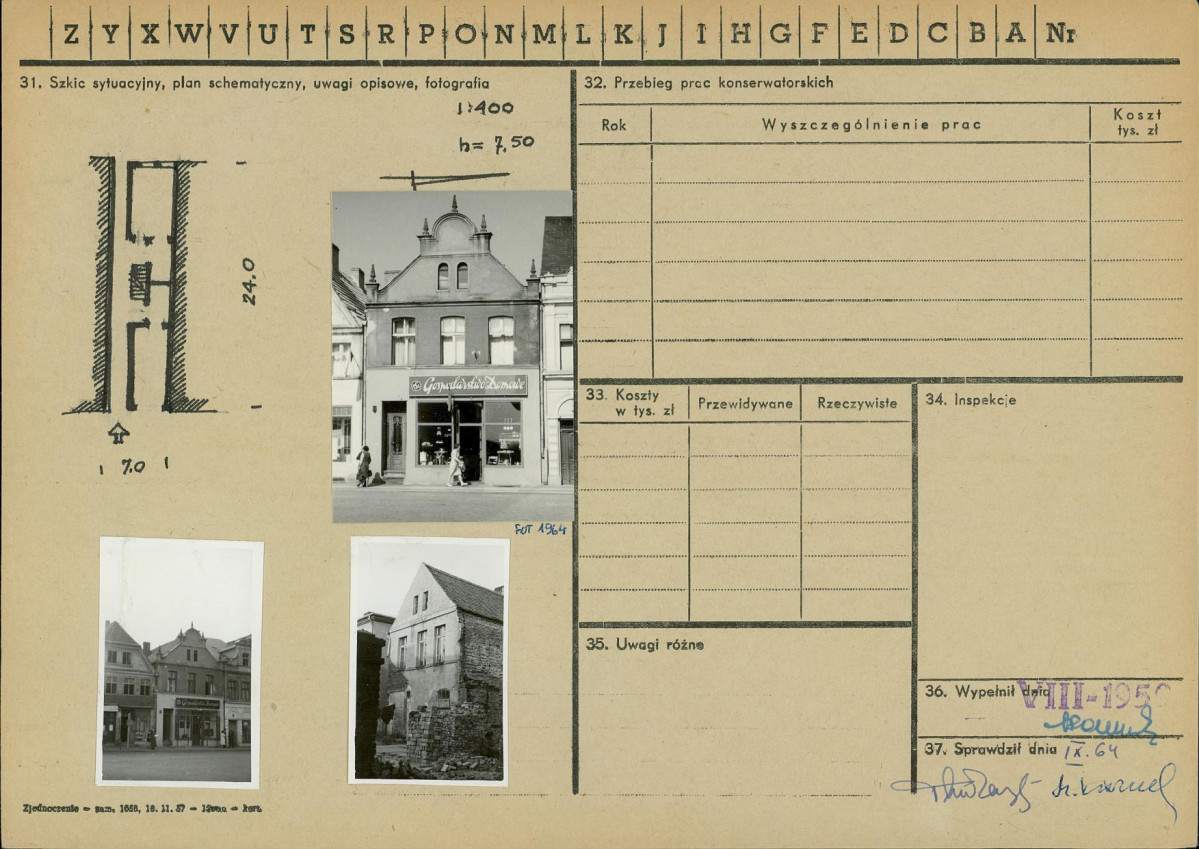 Z Y X W V U T S R P O N M L K J I H G F E D C B A Nr
31. Szkic sytuacyjny, plan schematyczny, uwagi opisowe, fotografia
1:400
h= 7,50
24.0
7.0
Gospodarstwo Domowe
FOT 1964
Zjednoczenie — zam. 1656, 18. 11. 57 — — kart.
32. Przebieg prac konserwatorskich
Rok
Wyszczególnienie prac
Koszt
tys. zł
33. Koszty
w tys. zł
Przewidywane
Rzeczywiste
34. Inspekcje
35. Uwagi różne
36. Wypełnił dnia
VIII-1959
37. Sprawdził dnia IX. 64